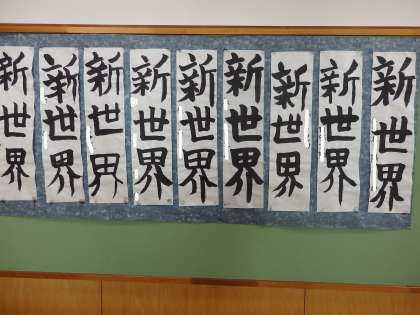 新世界
新世界
新世界
新世界
新世界
新世界
新世界
新世界
新世界